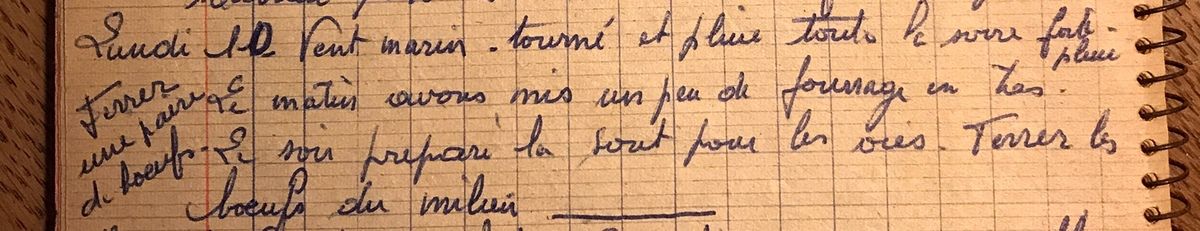 Lundi 10 Vent marin - tourné et pluie toute la soirée forte
pluie
Ferrer
une paire
de boeufs -
Le matin avons mis un peu de fourrage en tas.
Le soir préparé la sout pour les oies. Ferrer les
boeufs du milieu